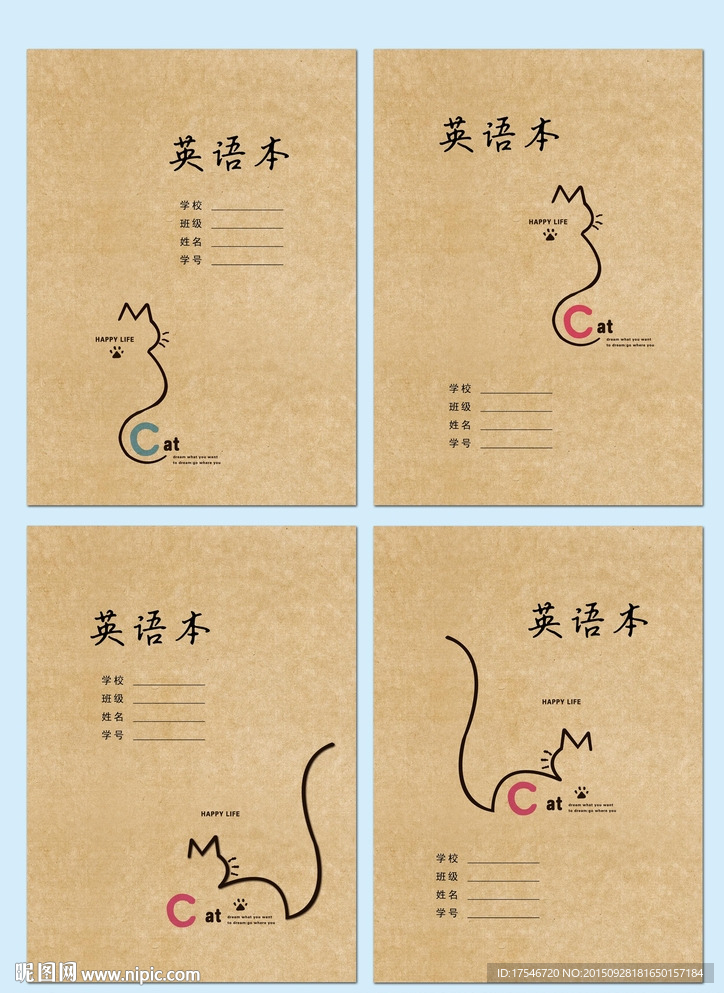 英语本
学校
班级
姓名
学号
HAPPY LIFE
Cat
dream what you want
to dream:go where you
英语本
HAPPY LIFE
Cat
dream what you want
to dream:go where you
学校
班级
姓名
学号
英语本
学校
班级
姓名
学号
HAPPY LIFE
Cat
dream what you want
to dream:go where you
英语本
HAPPY LIFE
Cat
dream what you want
to dream:go where you
学校
班级
姓名
学号
昵图网 www.nipic.com
ID:17546720 NO:20150928181650157184